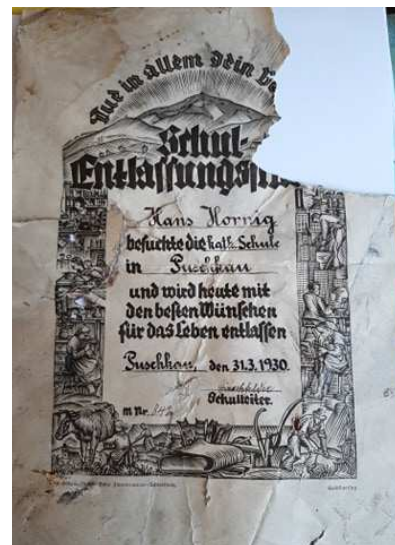 Tue in allem Dein Be
Schul-
Entlassungs
Hans Hornig
besuchte die kath. Schule
in Puschkau
und wird heute mit
den besten Wünschen
für das Leben entlassen
Puschkau, den 31.3.1930.
Schulleiter.
m Nr.